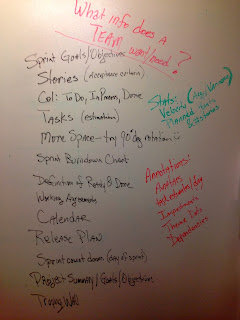 What info does a
TEAM want/need?
Sprint Goals/Objectives
Stories (Acceptance criteria)
Col: To Do, In Process, Done
Tasks (estimation)
More Space - try 90° deg rotation
Sprint Burndown Chart
Definition of Ready & Done
Working Agreements
Calendar
Release Plan
Sprint count down (day of sprint)
Project Summary/Goals/Objectives
Trophy Wall
Stats:
Velocity
Planned
Annotations:
Blocking
Impediments
Theme
Dependencies